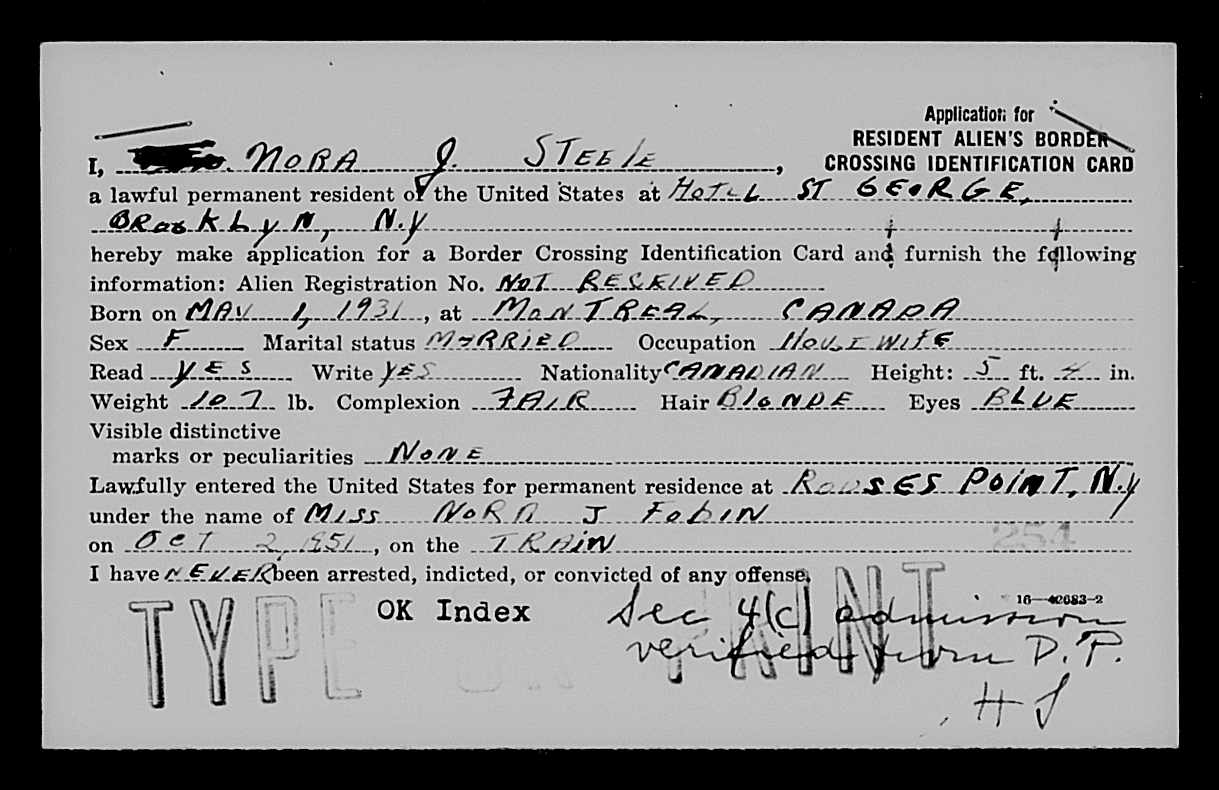 Application for
RESIDENT ALIEN'S BORDER
CROSSING IDENTIFICATION CARD
I, NORA J. STEELE,
a lawful permanent resident of the United States at HOTEL ST GEORGE,
BROOKLYN, N.Y
hereby make application for a Border Crossing Identification Card and furnish the following
information: Alien Registration No. NOT RECEIVED
Born on MAY 1, 1931, at MONTREAL, CANADA
Sex F Marital status MARRIED Occupation HOUSEWIFE
Read YES Write YES Nationality CANADIAN Height: 5 ft. 4 in.
Weight 107 lb. Complexion FAIR Hair BLONDE Eyes BLUE
Visible distinctive
marks or peculiarities NONE
Lawfully entered the United States for permanent residence at ROUSES POINT, N.Y
under the name of MISS NORA J FOBIN
on OCT 2, 1951, on the TRAIN
254
I have NEVER been arrested, indicted, or convicted of any offense.
16—42683-2
TYPE OR PRINT
OK Index
Sec 4(c) admission
verified from D.P.
HS